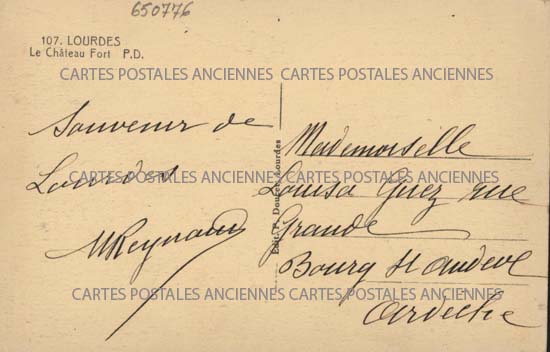 650776
107. LOURDES
Le Château Fort P.D.
CARTES POSTALES ANCIENNES CARTES POSTALES ANCIENNES
Souvenir de
Lourdes
MReynaud
Edit. P. Doucet, Lourdes
Mademoiselle
Louisa Guez rue
Grande
Bourg St Andeol
Ardeche
CARTES POSTALES ANCIENNES CARTES POSTALES ANCIENNES
CARTES POSTALES ANCIENNES CARTES POSTALES ANCIENNES